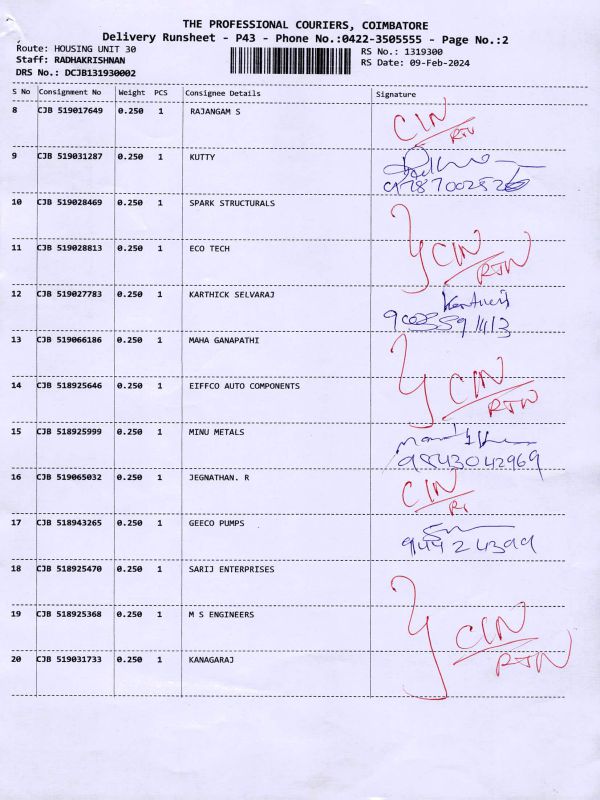 THE PROFESSIONAL COURIERS, COIMBATORE
Delivery Runsheet - P43 - Phone No.:0422-3505555 - Page No.:2
Route: HOUSING UNIT 30 RS No.: 1319300
Staff: RADHAKRISHNAN RS Date: 09-Feb-2024
DRS No.: DCJB131930002
S No Consignment No Weight PCS Consignee Details Signature
8 CJB 519017649 0.250 1 RAJANGAM S CIN
RTN
9 CJB 519031287 0.250 1 KUTTY
10 CJB 519028469 0.250 1 SPARK STRUCTURALS
11 CJB 519028813 0.250 1 ECO TECH CIN
RTN
12 CJB 519027783 0.250 1 KARTHICK SELVARAJ
13 CJB 519066186 0.250 1 MAHA GANAPATHI
14 CJB 518925646 0.250 1 EIFFCO AUTO COMPONENTS CIN
RTN
15 CJB 518925999 0.250 1 MINU METALS
9843042969
16 CJB 519065032 0.250 1 JEGNATHAN. R CIN
17 CJB 518943265 0.250 1 GEECO PUMPS
18 CJB 518925470 0.250 1 SARIJ ENTERPRISES
19 CJB 518925368 0.250 1 M S ENGINEERS CIN
20 CJB 519031733 0.250 1 KANAGARAJ RTN